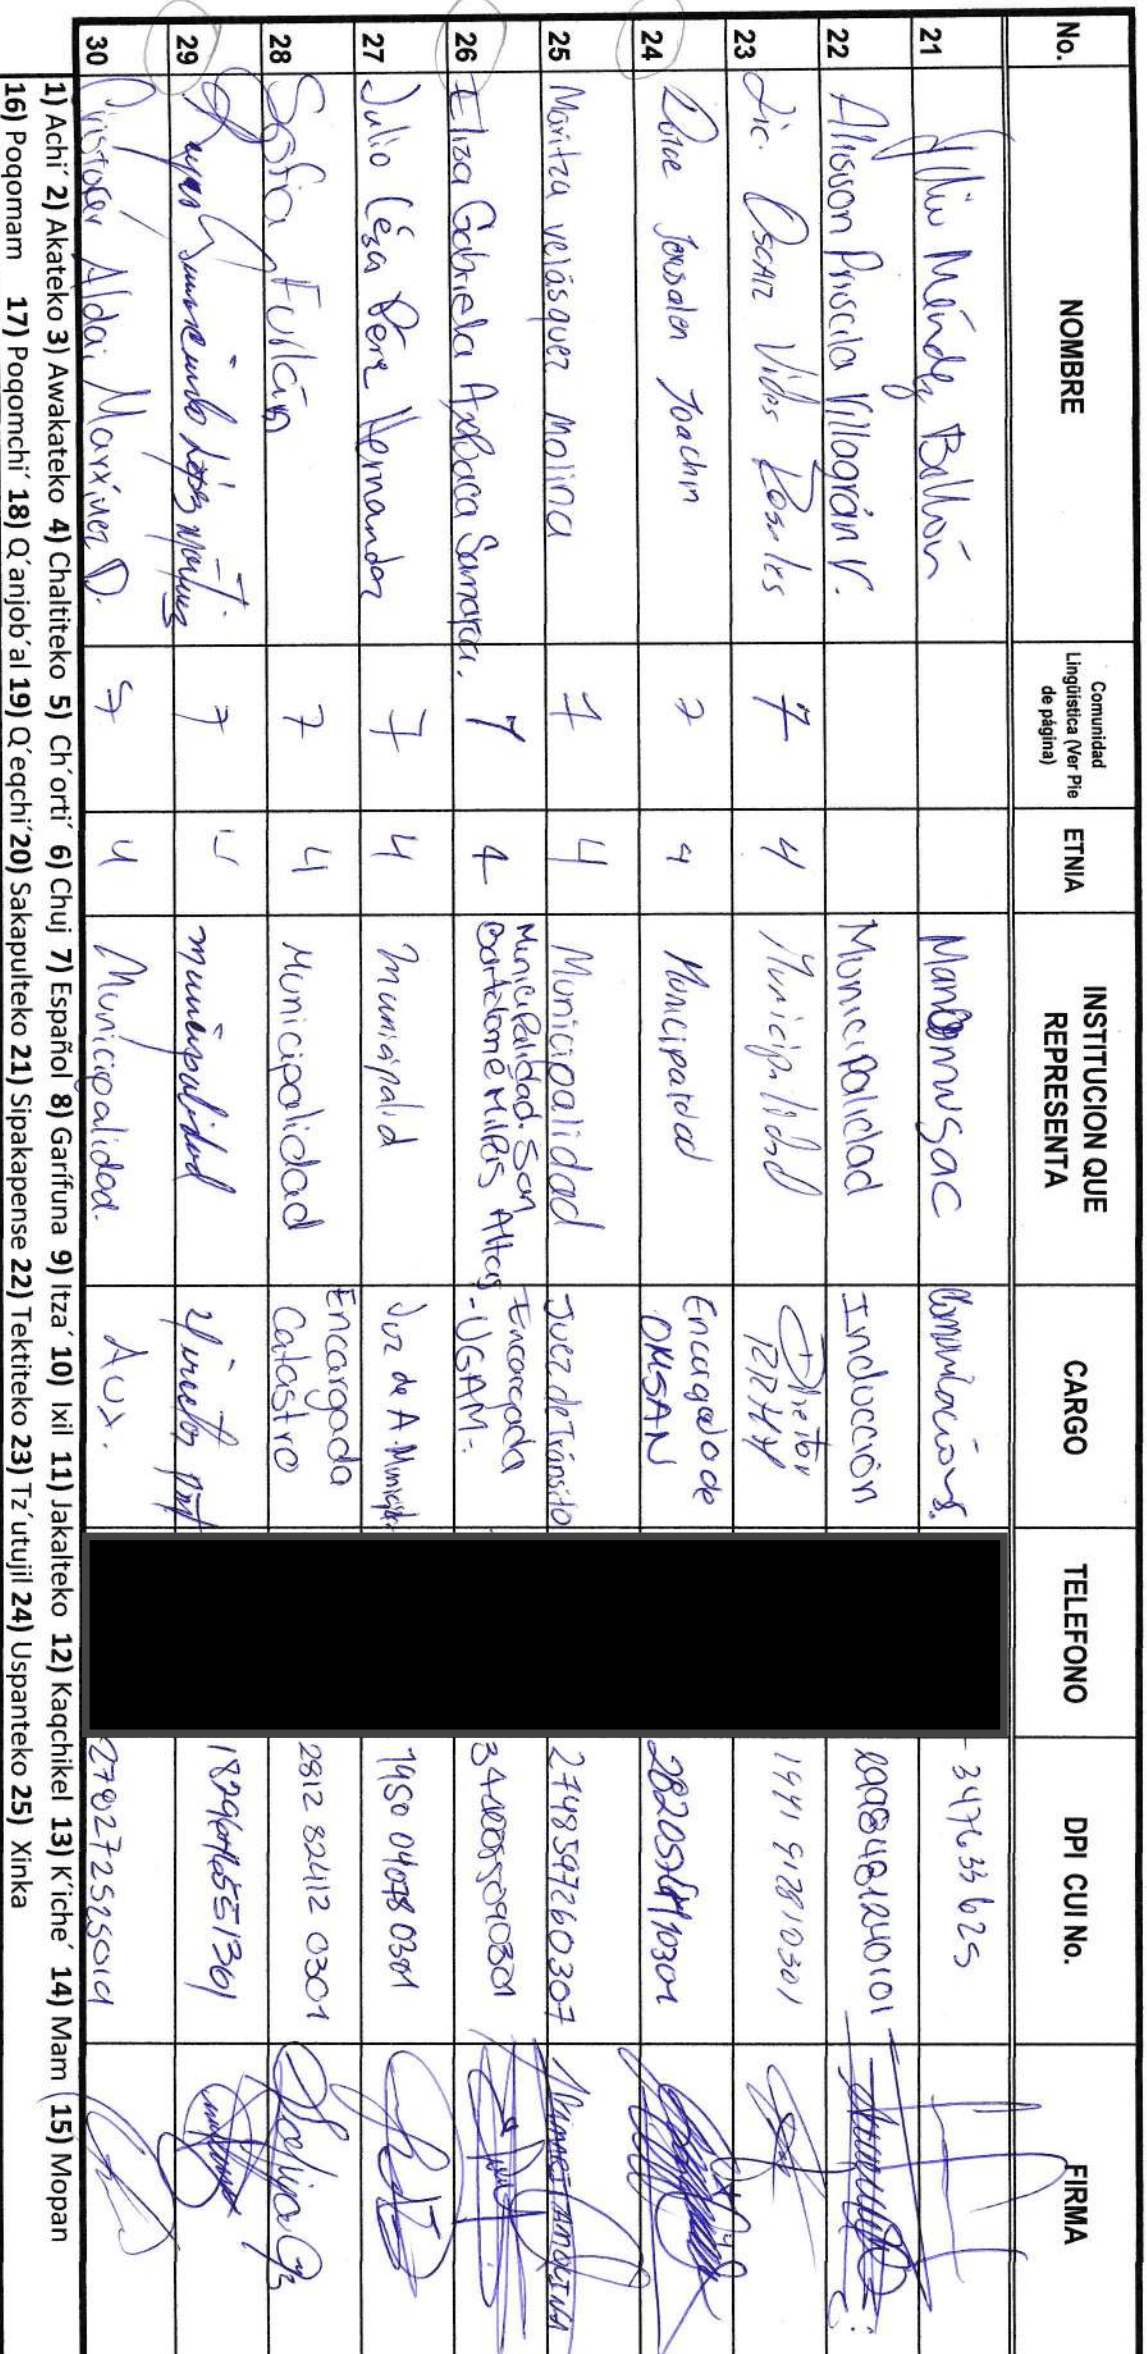 No. NOMBRE Comunidad Lingüistica (Ver Pie de página) ETNIA INSTITUCION QUE REPRESENTA CARGO TELEFONO DPI CUI No. FIRMA
21 Méndez Ballón Mancomusac Comunicaciones. 347633625
22 Alisson Priscila Villagrán V. Municipalidad Inducción 2998481240101
23 Lic. Oscar Vidos Rosales 7 4 Municipalidad Director RRHH 1991 912810301
24 Dulce Jerusalen Joachin 7 4 Municipaldad Encargado de OMSAN
25 Maritza velásquez Molina 7 4 Municipalidad Juez de Tránsito 2748597260307
26 Eliza Gabriela Samora. 7 4 Municipalidad San Bartolomé Milpas Altas Encargada -UGAM-.
27 Julio Césa Pérez Hernandez 7 4 Municipalid Juz de A. Municipal 1950 04078 0301
28 Sofia Fulián 7 4 Municipalidad Encargada Catastro 2812 82412 0301
29 López Martínez 7 4 municipalidad Director
30 Cristofer Aldai Marxiner D. 7 4 Municipalidad. Aux. 2782725250101
1) Achi´ 2) Akateko 3) Awakateko 4) Chaltiteko 5) Ch´orti´ 6) Chuj 7) Español 8) Garífuna 9) Itza´ 10) Ixil 11) Jakalteko 12) Kaqchikel 13) K´iche´ 14) Mam 15) Mopan
16) Poqomam 17) Poqomchi´ 18) Q´anjob´al 19) Q´eqchi´ 20) Sakapulteko 21) Sipakapense 22) Tektiteko 23) Tz´utujil 24) Uspanteko 25) Xinka